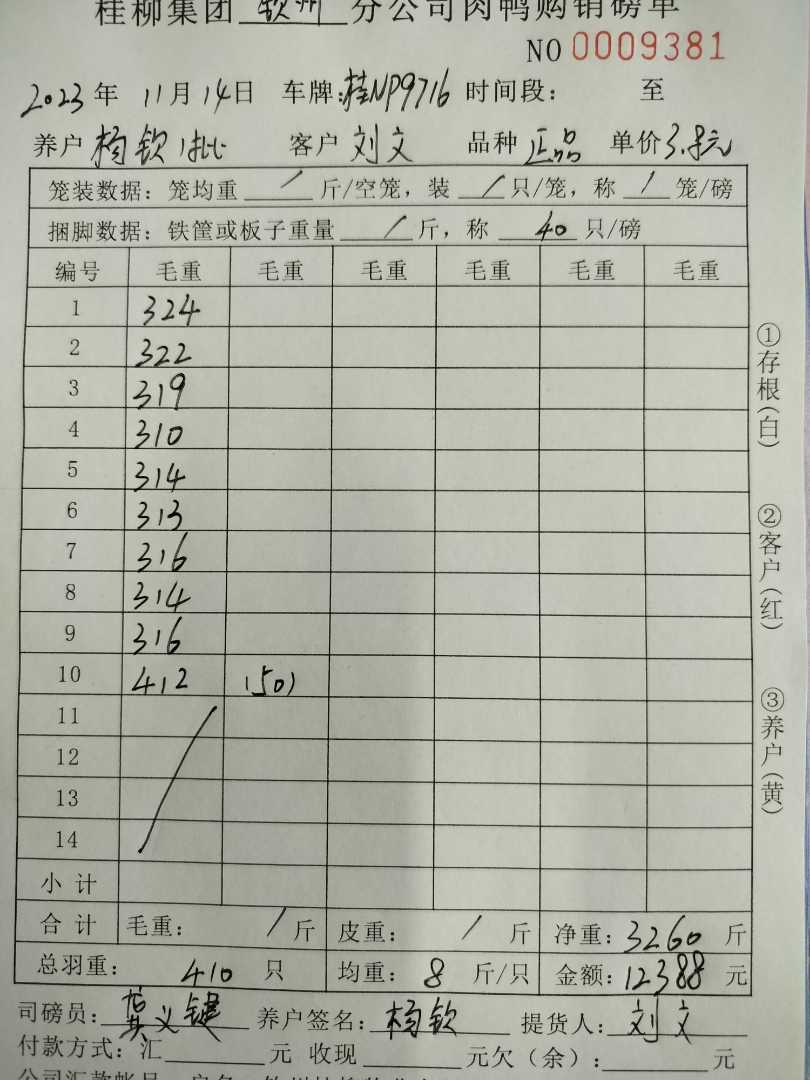 桂柳集团 钦州 分公司肉鸭购销磅单
NO 0009381
2023年 11月14日 车牌:桂NP9716 时间段: 至
养户 杨钦1批 客户 刘文 品种 正品 单价3.8元
笼装数据:笼均重 / 斤/空笼,装 / 只/笼,称 / 笼/磅
捆脚数据:铁筐或板子重量 / 斤,称 40 只/磅
编号 毛重 毛重 毛重 毛重 毛重 毛重
1 324
2 322
3 319
4 310
5 314
6 313
7 316
8 314
9 316
10 412 (50)
11
12
13
14
小计
合计 毛重: / 斤 皮重: / 斤 净重:3260 斤
总羽重: 410 只 均重: 8 斤/只 金额:12388 元
司磅员: 义键 养户签名: 杨钦 提货人: 刘文
付款方式:汇 元 收现 元欠(余): 元
①存根(白)
②客户(红)
③养户(黄)